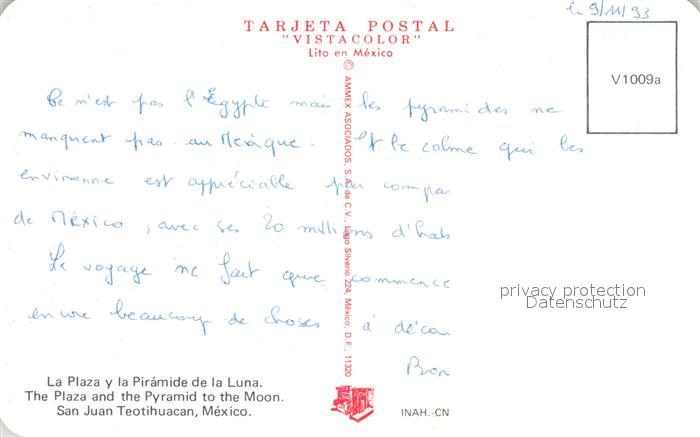 le 9/11/93
TARJETA POSTAL
"VISTACOLOR"
Lito en México
V1009a
© AMMEX ASOCIADOS, S.A. de C.V., Lago Silverio 224, México, D.F., 11320
Ce n'est pas l'Égypte mais les pyramides ne
manquent pas au Mexique. Et le calme qui les
environne est appréciable par compa
de México, avec ses 20 millions d'habs
Le voyage ne fait que commence
encore beaucoup de choses à décou
Bon
privacy protection
Datenschutz
La Plaza y la Pirámide de la Luna.
The Plaza and the Pyramid to the Moon.
San Juan Teotihuacan, México.
INAH.-CN